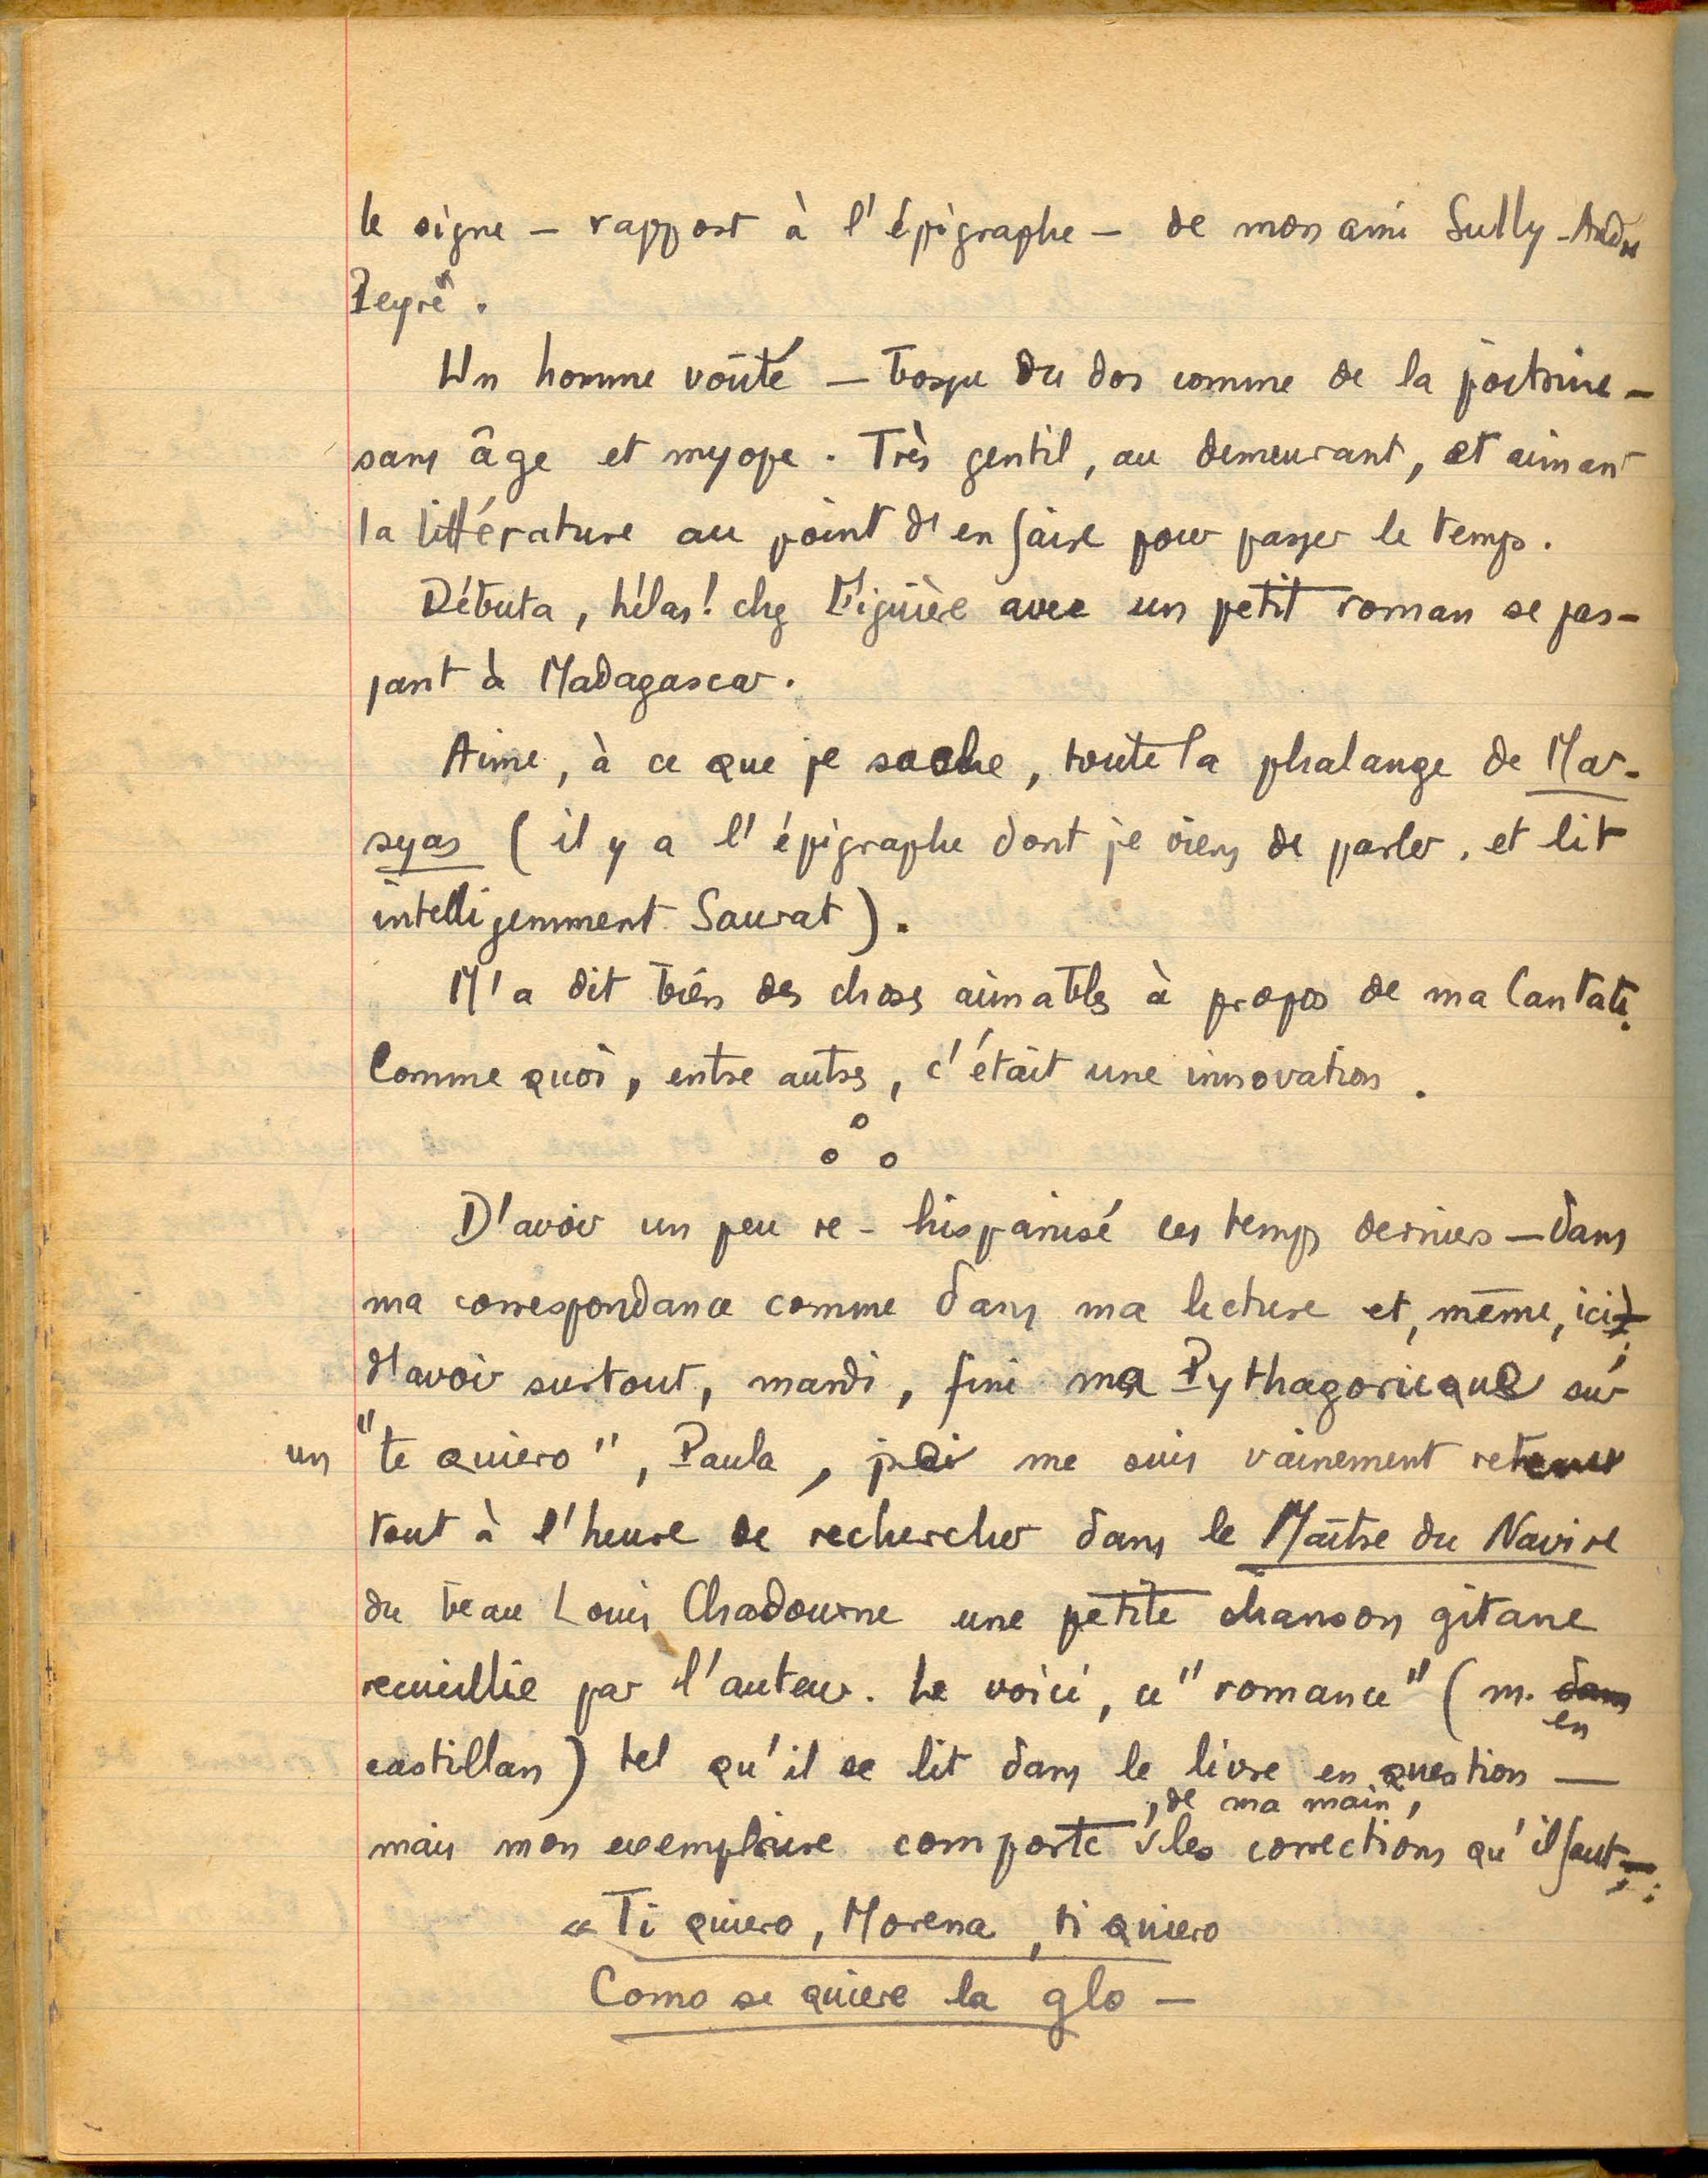 le signe — rapport à l'épigraphe — de mon ami Sully-André
Peyre.
Un homme voûté — bossu du dos comme de la poitrine —
sans âge et myope. Très gentil, au demeurant, et aimant
la littérature au point d'en faire pour passer le temps.
Débuta, hélas! chez Figuière avec un petit roman se pas-
sant à Madagascar.
Aime, à ce que je sache, toute la phalange de Mar-
syas (il y a l'épigraphe dont je viens de parler, et lit
intelligemment Saurat).
M'a dit bien des choses aimables à propos de ma Cantate.
Comme quoi, entre autres, c'était une innovation.
D'avoir un peu re-hispanisé ces temps derniers — dans
ma correspondance comme dans ma lecture et, même, ici;
d'avoir surtout, mardi, fini ma Pythagoricque sur
un "te quiero", Paula, je me suis vainement retenu
tout à l'heure de rechercher dans le Maître du Navire
du beau Louis Chadourne une petite chanson gitane
recueillie par l'auteur. Le voici, ce "romance" (m. dans en
castillan) tel qu'il se lit dans le livre en question —
mais mon exemplaire comporte, de ma main, les corrections qu'il faut;:
« Ti quiero, Morena, ti quiero
Como se quiere la glo —